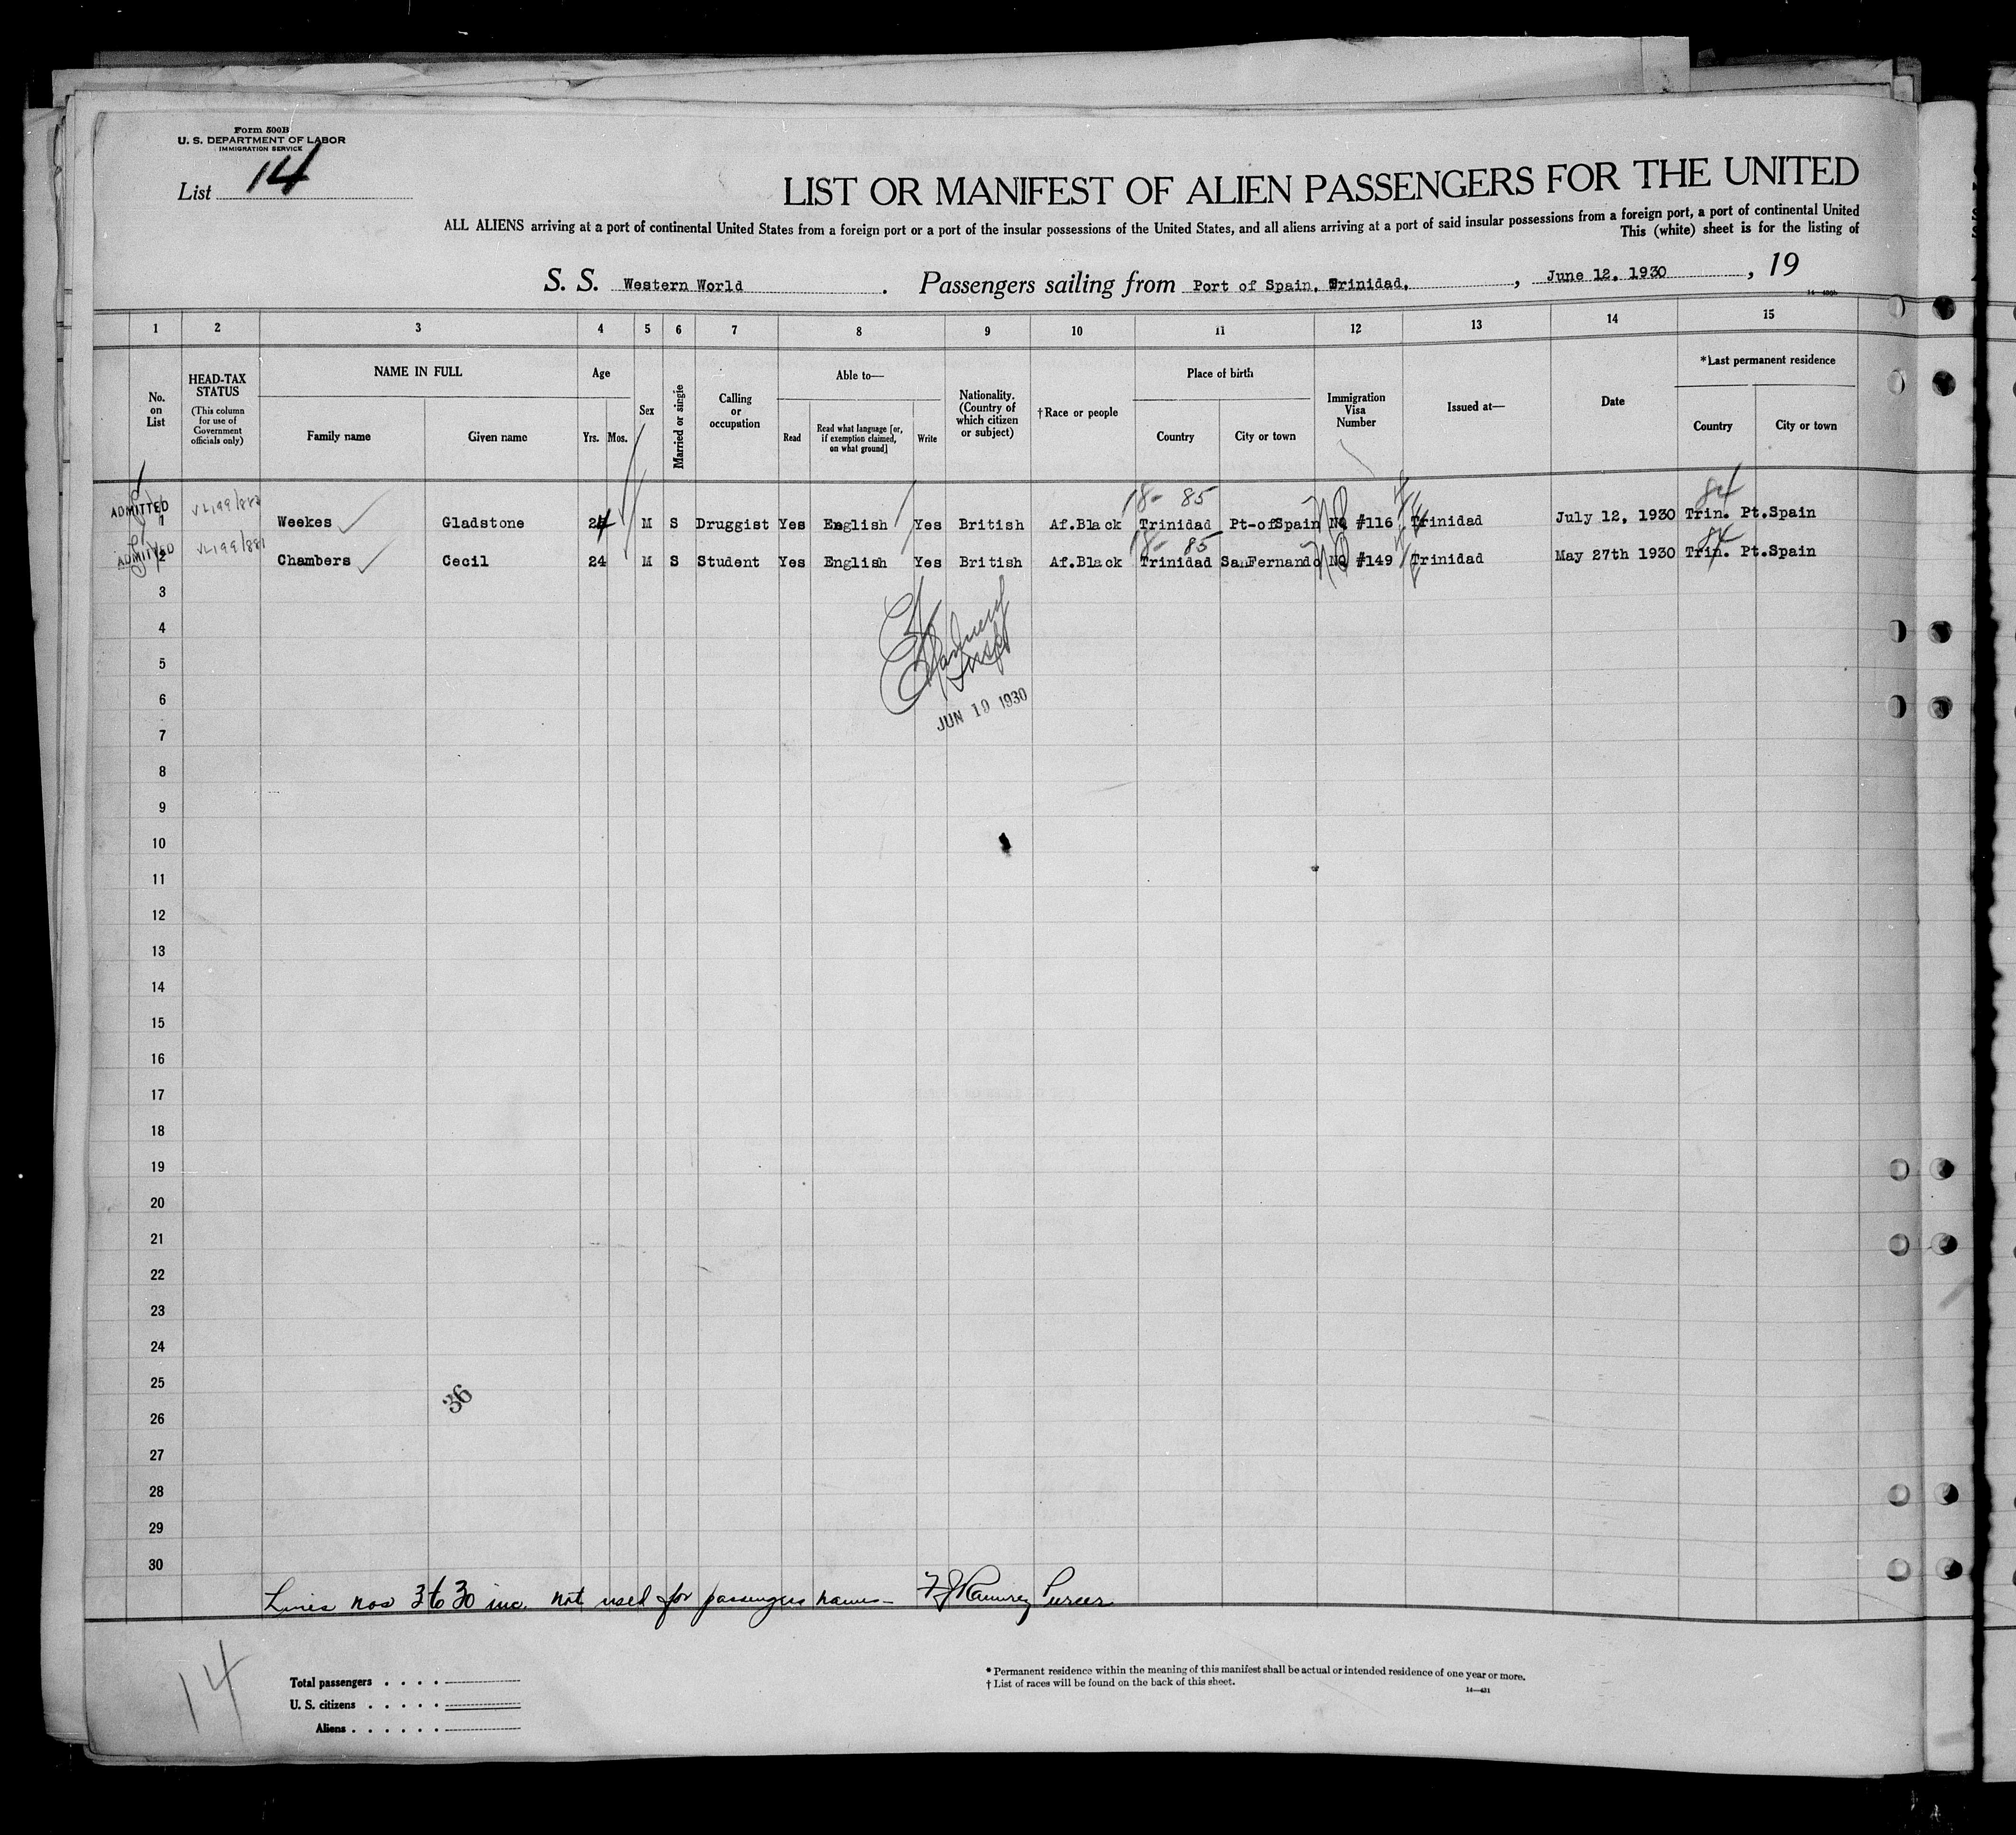 Form 500B
U. S. DEPARTMENT OF LABOR
IMMIGRATION SERVICE
List 14
LIST OR MANIFEST OF ALIEN PASSENGERS FOR THE UNITED
ALL ALIENS arriving at a port of continental United States from a foreign port or a port of the insular possessions of the United States, and all aliens arriving at a port of said insular possessions from a foreign port, a port of continental United
This (white) sheet is for the listing of
S. S. Western World. Passengers sailing from Port of Spain, Trinidad, , June 12, 1930 , 19
1 2 3 4 5 6 7 8 9 10 11 12 13 14 15
No. on List
HEAD-TAX STATUS
(This column for use of Government officials only)
NAME IN FULL
Family name Given name
Age
Yrs. Mos.
Sex
Married or single
Calling or occupation
Able to—
Read
Read what language [or, if exemption claimed, on what ground]
Write
Nationality. (Country of which citizen or subject)
†Race or people
Place of birth
Country City or town
Immigration Visa Number
Issued at—
Date
*Last permanent residence
Country City or town
18- 85 84
ADMITTED 1 Weekes Gladstone 24 M S Druggist Yes English Yes British Af.Black Trinidad Pt-ofSpain NQ #116 Trinidad July 12, 1930 Trin. Pt.Spain
18- 85 84
ADMITTED 2 Chambers Cecil 24 M S Student Yes English Yes British Af.Black Trinidad SanFernando NQ #149 Trinidad May 27th 1930 Trin. Pt.Spain
3
4
5
6
JUN 19 1930
7
8
9
10
11
12
13
14
15
16
17
18
19
20
21
22
23
24
25
36
26
27
28
29
30
Lines nos 3 to 30 inc. not used for passengers names— F J Ramirez Purser
14
Total passengers . . . .
U. S. citizens . . . . .
Aliens . . . . . .
* Permanent residence within the meaning of this manifest shall be actual or intended residence of one year or more.
† List of races will be found on the back of this sheet.
14—431